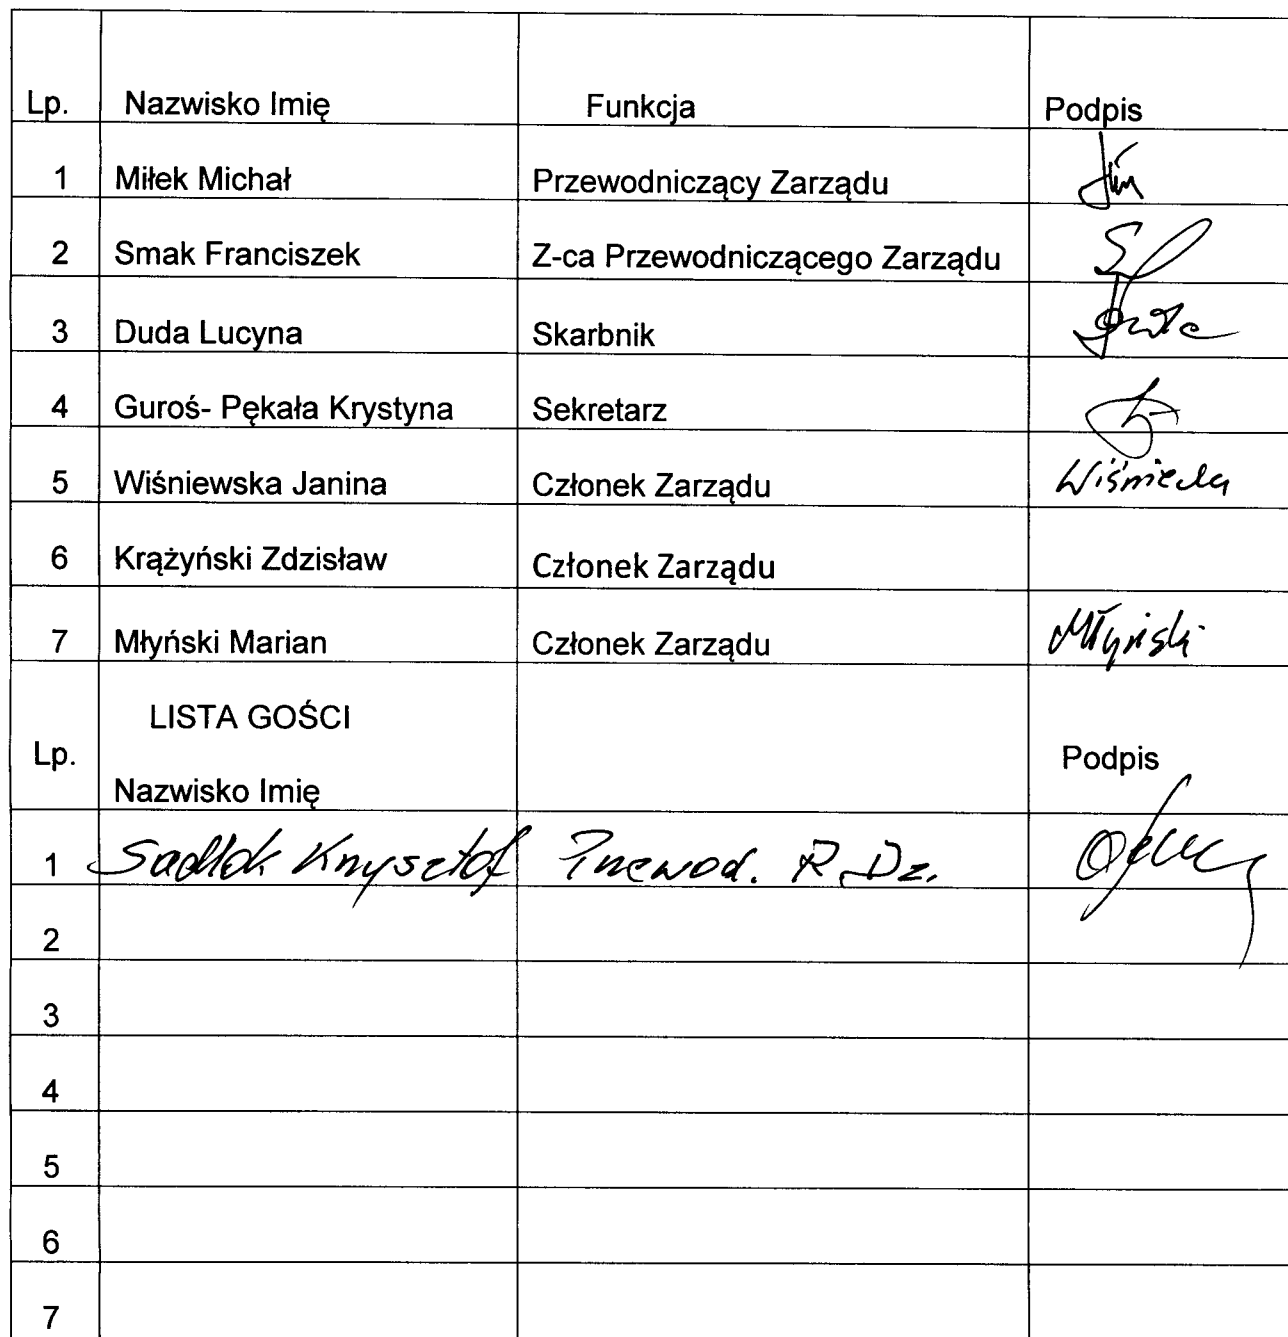 Lp. Nazwisko Imię Funkcja Podpis
1 Miłek Michał Przewodniczący Zarządu
2 Smak Franciszek Z-ca Przewodniczącego Zarządu
3 Duda Lucyna Skarbnik
4 Guroś- Pękała Krystyna Sekretarz
5 Wiśniewska Janina Członek Zarządu
6 Krążyński Zdzisław Członek Zarządu
7 Młyński Marian Członek Zarządu Młyński
LISTA GOŚCI
Lp. Podpis
Nazwisko Imię
1 Sadlok Krzysztof Przewod. R. Dz.
2
3
4
5
6
7